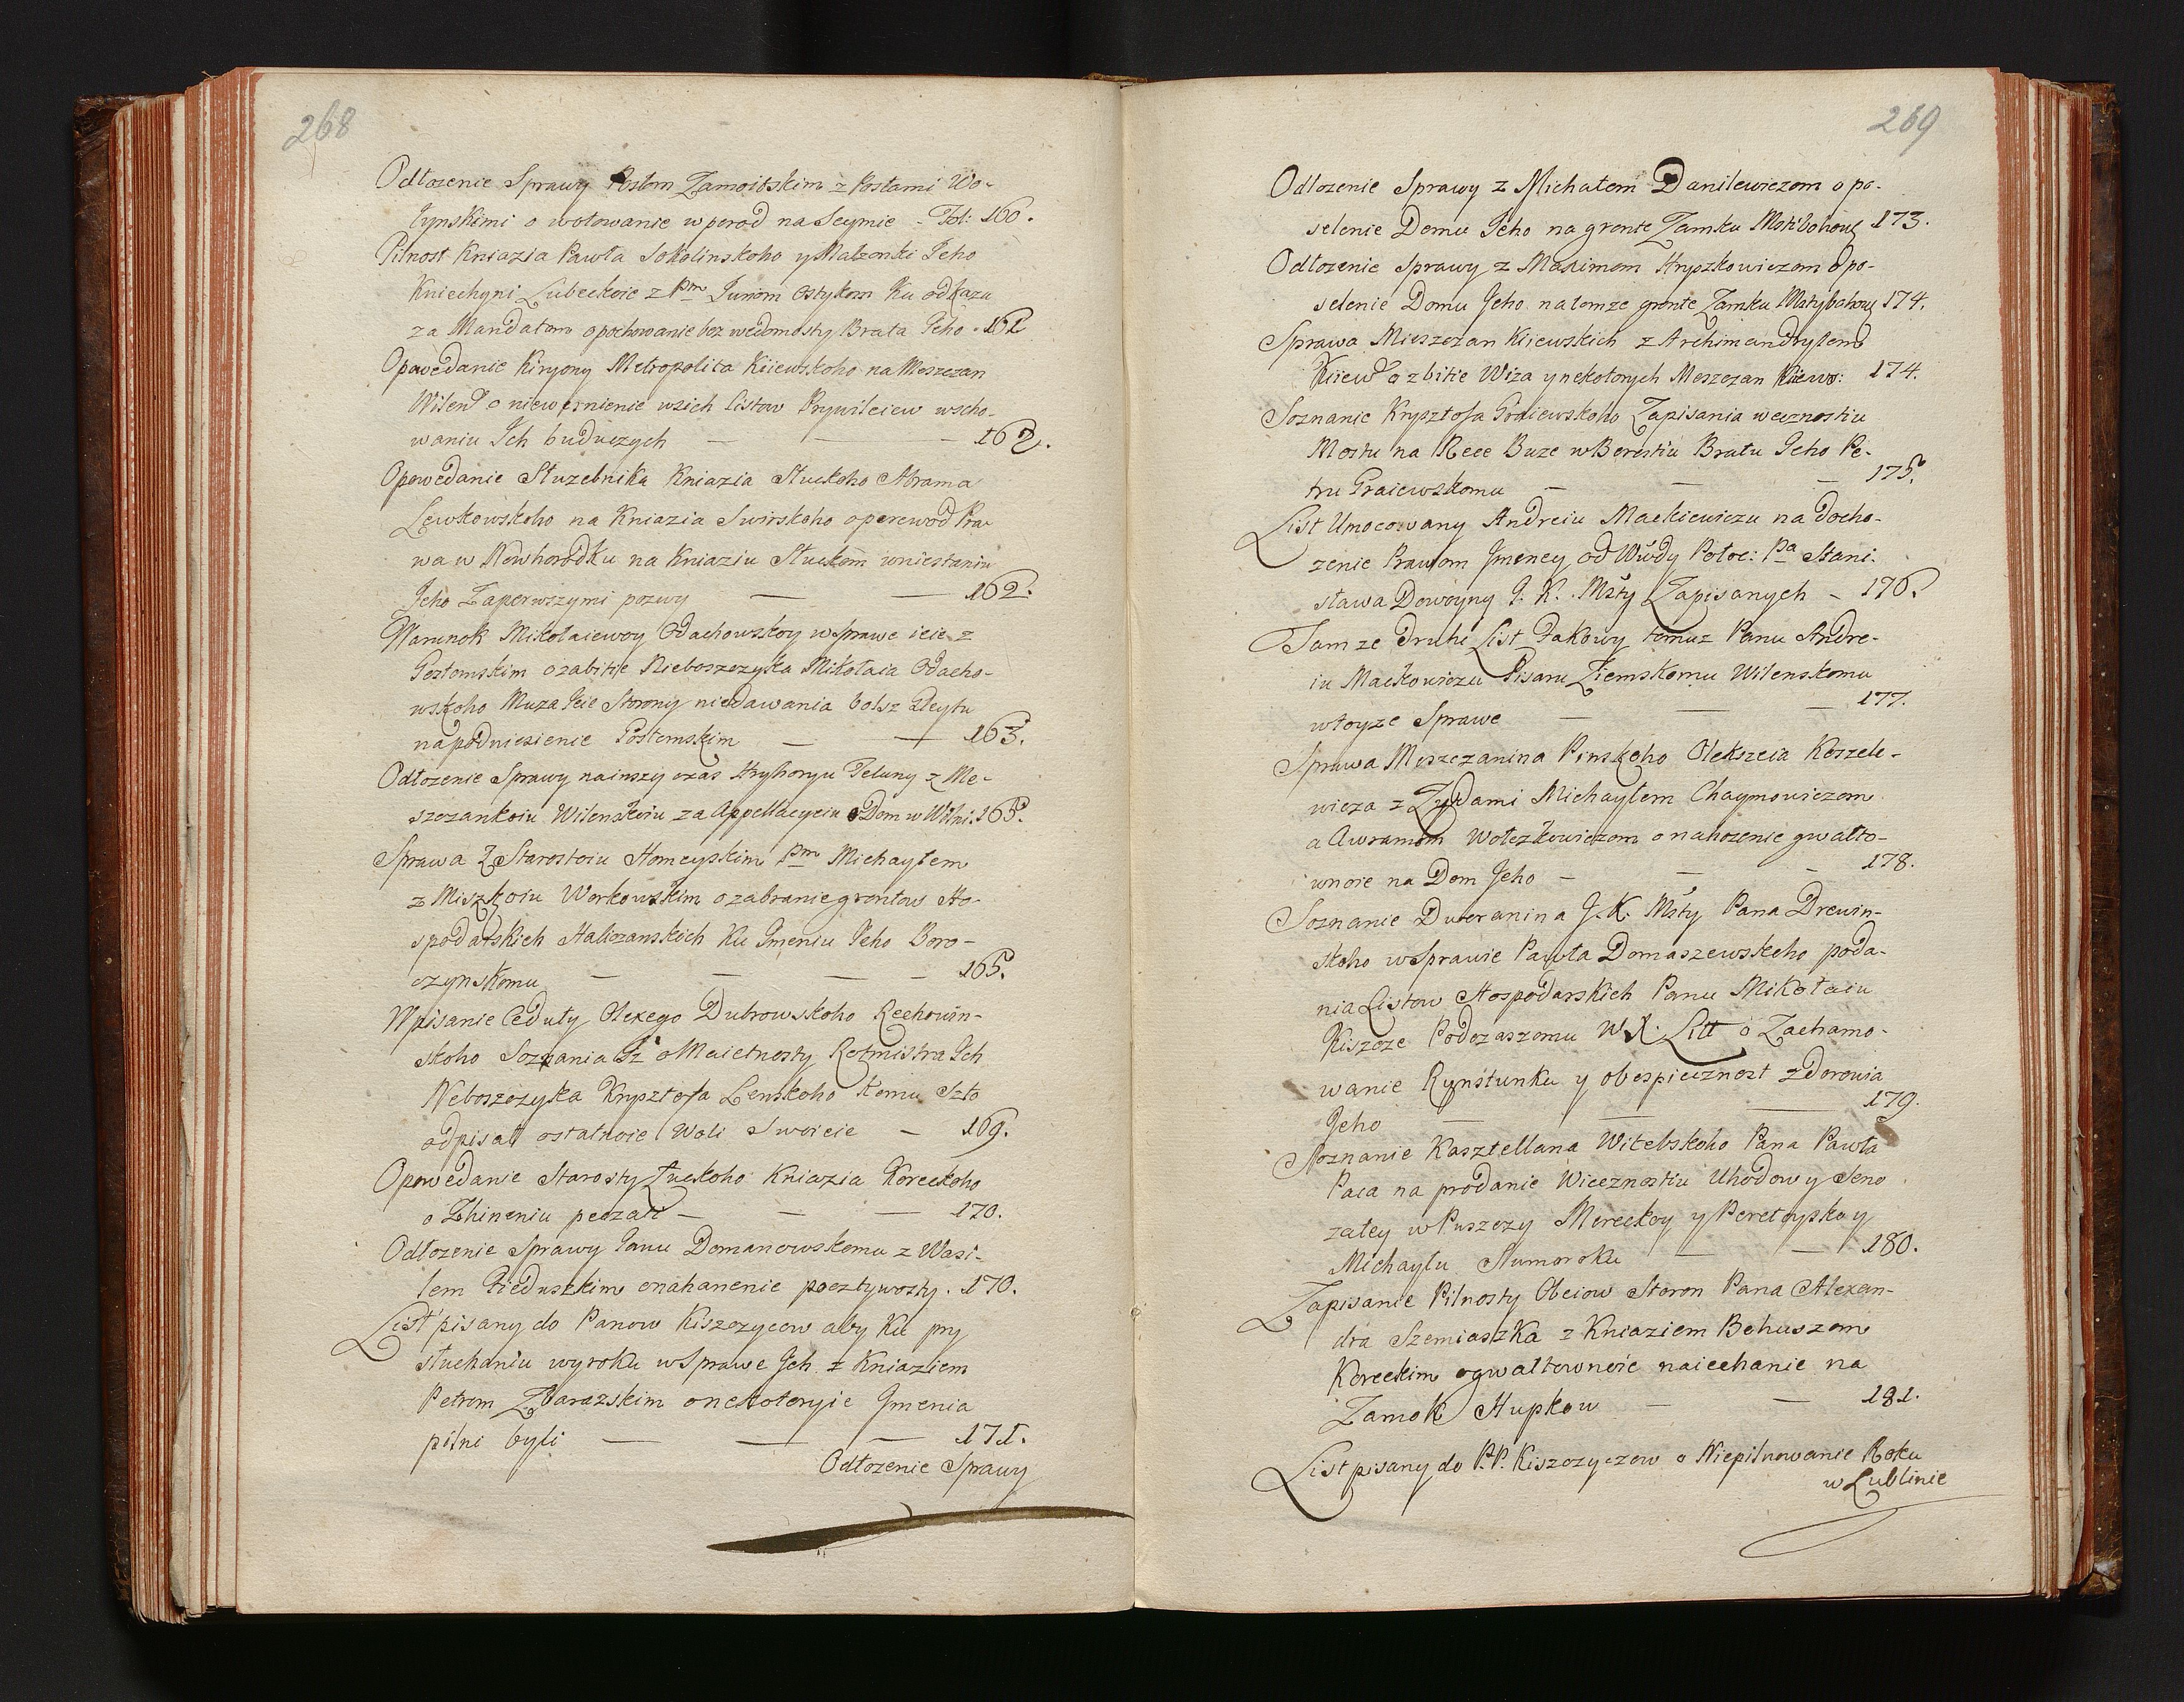 268
Odłozenie Sprawy Posłom Zamoitskim z Posłami Wo-
łynskimi o wotowanie w perod na Seymie - Fol: 160.
Pilnost Kniazia Pawła Sokolinskoho y Małzonki Jeho
Kniehyni Lubeckoie z Pm Juriom Ostykom Ku odkazu
za Mandatom o pochowanie bez wedomosty Brata Jeho - 161
Opowedanie Kiryony Metropolita Kiiewskoho na Meszczan
Wilen o niewernienie wsich listow Prywileiew wscho-
waniu Ich buduczych — — — 162.
Opowedanie Służebnika Kniazia Słuckoho Abrama
Lewkowskoho na Kniazia Swirskoho o perewod Pra-
wa w Nowhorodku na Kniaziu Słuckom wniestaniu
Jeho Zaperwszymi pozwy — — 162.
Warunok Mikołaiewoy Odachowskoy w Sprawe ieie z
Gostomskim o zabitie Nieboszczyka Mikołaia Odacho-
wskoho Muza Jeie Storony niedawania bolsz Kleytu
na podniesienie Postomskim — — 163.
Odłozenie Sprawy nainszy czas Hryhoryu Jeluny z Me-
szczankoiu Wilenskoiu za Appellacyeiu o Dom w Wilni. 165.
Sprawa Z Starostoiu Homeyskim Pm Michayłem
z Miszkoiu Workowskim o zabranie grontow Ho-
spodarskich Haliczanskich Ku Jmeniu Jeho Boro-
czynskomu — — — — 165.
Wpisanie Ceduły Olexego Dubrowskoho Rechowin-
skoho Soznania Iz o Maietnosty Rotmistra Ich
Neboszczyka Krysztofa Lenskoho Komu Szto
odpisał ostatnoie Woli Swoieie — 169.
Opowedanie Starosty Łuckoho Kniazia Koreckoho
o Zhineniu peczati — — — 170.
Odłozenie Sprawy Panu Domanowskomu z Wasi-
lem Pieduszkim o nahanenie poczitywosty. 170.
List pisany do Panow Kiszczycow aby Ku pry
słuchaniu wyroku w Sprawe Jch z Kniaziem
Petrom Zbarazskim o nekotoryie Jmenia
pilni byli — — — 171.
Odłozenie Sprawy
269
Odłozenie Sprawy z Michałem Danilewiczom o po-
selenie Domu Jeho na gronte Zamku Mstibohow 173.
Odłozenie Sprawy z Maximom Hryszkowiczom o po-
selenie Domu Jeho na tomze gronte Zamku Mstybohow 174.
Sprawa Mieszczan Kiiewskich z Archimandrytem
Kiiew o zbitie Wiza y nekotorych Meszczan Kiiews: 174.
Soznanie Krysztofa Graiewskoho Zapisania wecznostiu
Mostu na Rece Buze w Berestiu Bratu Jeho Pe-
tru Graiewskomu — — — 175.
List Umocowany Andreiu Mackiewiczu na docho-
zenie Prawom Jmeney od Wwdy Połoc: Pa Stani-
sława Dowoyny J. K. Msty Zapisanych - 176.
Tam ze druhi List Takowy tomuz Panu Andre-
iu Mackowiczu Pisaru Ziemskomu Wilenskomu
wtoyze Sprawe — — — 177.
Sprawa Meszczanina Pinskoho Olekszeia Koszele-
wicza z Zydami Michayłem Chaymowiczom
a Awramom Wołczkowiczom o nahozenie gwałto-
wnoie na Dom Jeho — — — 178.
Soznanie Dworanina J. K. Msty Pana Drewin-
skoho w Sprawie Pawła Domaszewskoho poda-
nia Listow Hospodarskich Panu Mikołaiu
Kiszcze Podczaszomu W. X. Litt o Zachamo-
wanie Rynsztunku y obespiecznost zdorowia
Jeho — — — 179.
Soznanie Kasztellana Witebskoho Pana Pawła
Paca na prodanie Wiecznostiu Uhodow y Seno
zatey w Puszczy Mereckoy y Peretoyskoy
Michayłu Sumoroku — — 180.
Zapisanie Pilnosty Obeiow Storon Pana Alexan-
dra Szemiaszka z Kniaziem Bohuszom
Koreckim o gwałtownoie naiechanie na
Zamok Hupkow — — 181.
List pisany do P.P. Kiszczyczow o Niepilnowanie Roku
w Lublinie